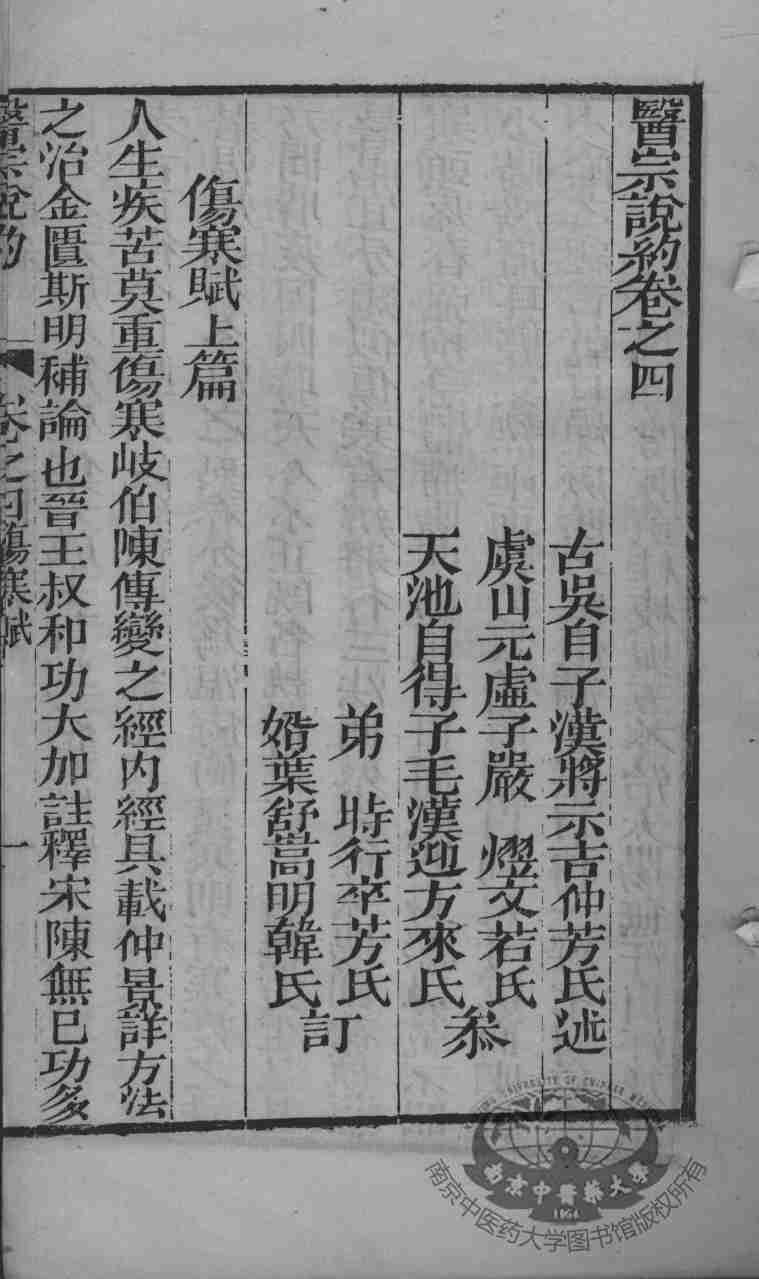 醫宗說約卷之四
古吳自子漢將示吉仲芳氏述
虞山元虛子嚴 熠文若氏
天池自得子毛漢迎方來氏
叅
弟 時行卒芳氏
婿葉舒嵩明韓氏
訂
傷寒賦上篇
人生疾苦莫重傷寒岐伯陳傳變之經內經具載仲景詳方法
之治金匱斯明補論也晉王叔和功大加註釋宋陳無已功多
醫宗說約 卷之四傷寒賦 一
UNIVERSITY OF CHINESE MEDICINE
南京中醫藥大學
1954
南京中医药大学图书馆版权所有